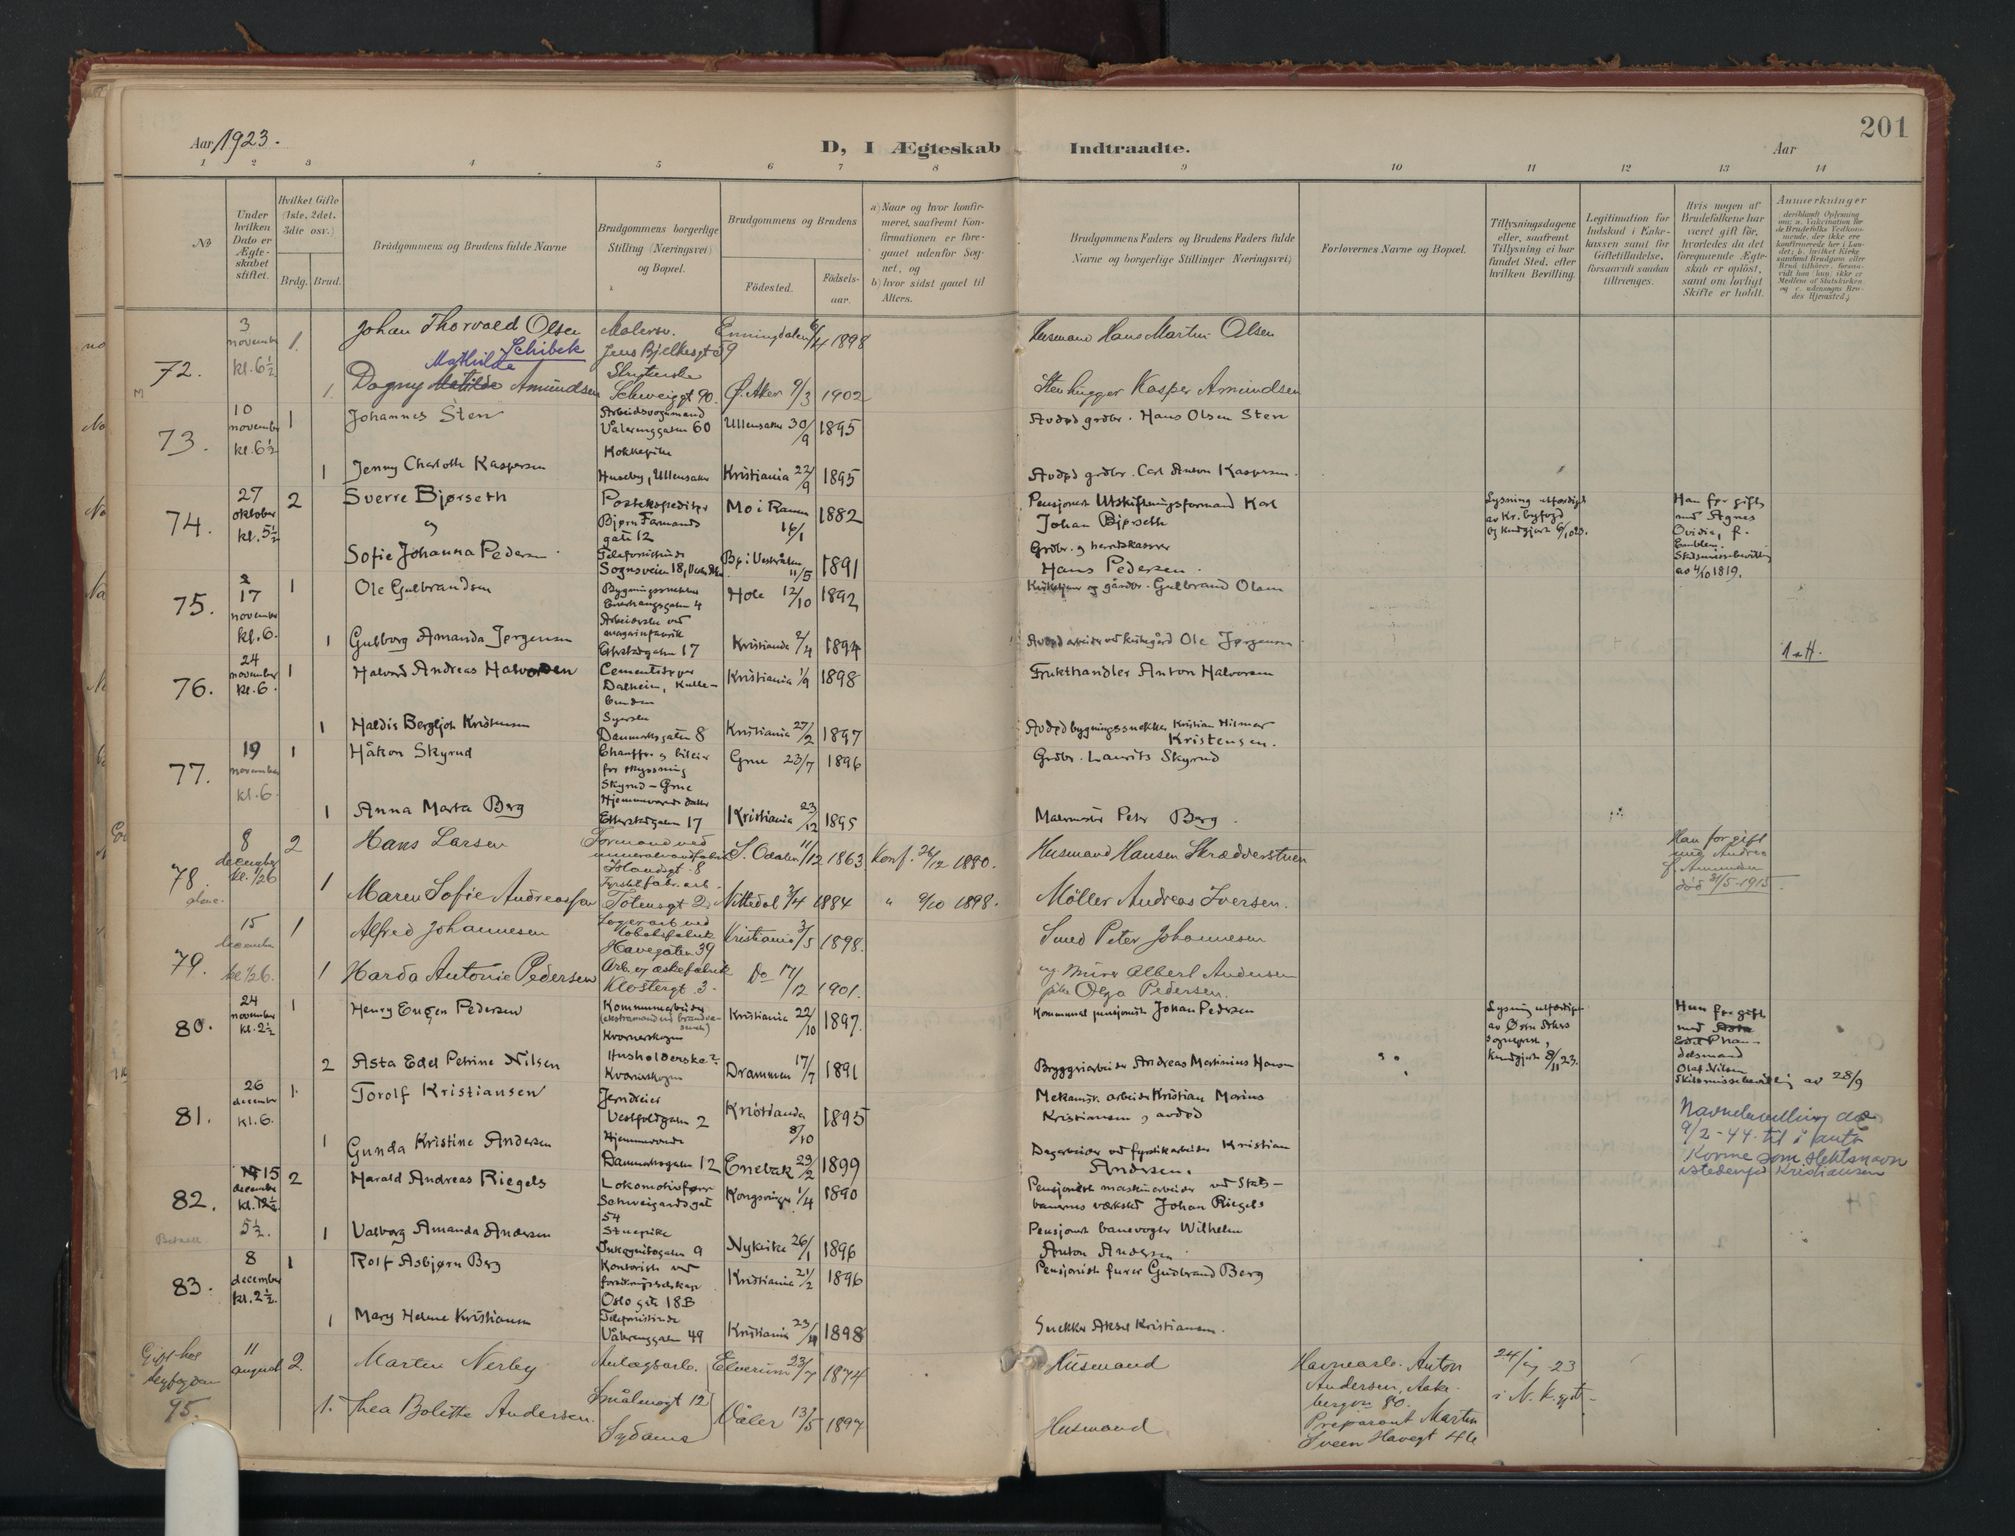 201
Aar 1923.
D, I Ægteskab Indtraadte.
Aar
1 2 3 4 5 6 7 8 9 10 11 12 13 14
No
Under hvilken Dato er Ægteskabet stiftet.
Hvilket Gifte (1ste, 2det. 3die osv.)
Brdg. Brud.
Brudgommens og Brudens fulde Navne
Brudgommens borgerlige Stilling (Næringsvei) og Bopæl.
Brudgommens og Brudens
Födested.
Födsels-aar.
a) Naar og hvor konfirmeret, saafremt Konfirmationen er foregaaet udenfor Sognet, og
b) hvor sidst gaaet til Alters.
Brudgommens Faders og Brudens Faders fulde Navne og borgerlige Stillinger (Næringsvei)
Forlovernes Navne og Bopæl.
Tillysningsdagene eller, saafremt Tillysning ei har fundet Sted, efter hvilken Bevilling.
Legitimation for Indskud i Enkekassen samt for Giftetilladelse, forsaavidt saadan tiltrænges.
Hvis nogen af Brudefolkene har været gift før, hvorledes da det foregaaende Ægteskab er oplöst, samt om lovligt Skifte er holdt.
Anmerkninger
72. 3 november kl. 6½ 1. Johan Thorvald Olsen Malersv. Jens Bjelkesgt 59 Enningdalen 6/4 1898 Husmand Hans Martin Olsen
Schibek
Mathilde
1. Dagny Matilde Amundsen Schweiggt 90. Ø. Aker 9/3 1902 Stenhugger Kasper Amundsen
73. 10 november kl. 6½ 1 Johannes Sten Arbeidsvognmand Vålerenggaten 60 Ullensaker 30/9 1895 Avdød grdbr. Hans Olsen Sten
1 Jenny Charlotte Kaspersen Kokkepike Huseby, Ullensaker Kristiania 22/9 1895 Avdød grdbr. Carl Anton Kaspersen.
74. 27 oktober kl. 5½ 2 Sverre Bjørseth Postekspeditør Bjørn Farmands gate 12 Mo i Ranen 16/1 1882 Pensjonert Utskiftningsformand Karl Johan Bjørseth Lysning utfærdiget av Kr. byfogd og kundgjort 6/10 23. Han før gift med Agnes Ovidia, f. Emblem. Skilsmissebevilling av 4/10 1819.
og
Sofie Johanna Pedersen Telefonistinde Sognsveien 18, Bø i Vesterålen 11/5 1891 Grdbr. og herredskasserer Hans Pedersen.
75. 17 november kl. 6. 1 Ole Gulbrandsen Bygningssnekker 4 Hole 12/10 1892 Kirketjener og gårdbr. Gulbrand Olsen
1 Gulborg Amanda Jørgensen Arbeiderske ved margarinfabrik Etterstadgaten 17 Kristiania 2/4 1894 Avdød arbeider ved kirkegård Ole Jørgensen
1 + H.
76. 24 november kl. 6. 1 Halvard Andreas Halvorsen Cementstøper Dalheim, Kristiania 1/9 1898 Frukthandler Anton Halvorsen
1 Haldis Bergljot Kristensen Syerske Danmarksgaten 8 Kristiania 27/2 1897 Avdød bygningssnekker Kristian Hilmar Kristensen.
77. 19 november kl. 6. 1 Håkon Skyrud Chauffør og bileier for skyssning Skyrud – Grue Grue 23/7 1896 Grdbr. Laurits Skyrud
1 Anna Marta Berg Hjemmeværende datter Etterstadgaten 17 Kristiania 23/12 1895 Malermester Peter Berg.
78. 8 december kl. ½6 2 Hans Larsen Formand ved mineralvandfabrik Islandsgt 8 S. Odalen 11/12 1863 Konf. 26/12 1880. Husmand Hansen Skrædderstuen Han før gift med Andrea f. Amundsen død 31/5 1915
1 Maren Sofie Andreassen Fyrstikfabr.arb. Totensgt 2 Nittedal 3/4 1884 " 9/10 1898. Møller Andreas Iversen.
79. 15 december kl ½6. 1 Alfred Johannesen Lagerarb ved Tobaksfabrik Havegaten 39 Kristiania 3/5 1898. Smed Peter Johannesen
1 Harda Antonie Pedersen Arb. og æskefabrik Klostergt. 3. Do 17/12 1901. ug. Murer Albert Andersen pike Olga Pedersen.
80. 24 november kl. 2½ 1 Henry Eugen Pedersen Kommunearbeider (ekstramand ved brandvesenet) Kværnerskogen Kristiania 22/10 1897. Kommunal pensjonist Johan Pedersen Lysning utfærdiget av Østre Akers sogneprest, kundgjort 8/11 23. Hun før gift med Asta Edel P han-delsmand Olaf Nilsen Skilsmissebevilling av 28/9
2 Asta Edel Petrine Nilsen Husholderske? Kværnerskogen Drammen 17/7 1891 Bryggeriarbeider Andreas Martinius Hansen
81. 26 december kl. 6. 1. Torolf Kristiansen Jerndreier Vestfoldgaten 2 Kristiania 8/10 1895 Mekanisk arbeider Kristian Marius Kristiansen, avdød Navnebevilling da 9/2-44 til i anta Korme som slektsnavn istedenfor Kristiansen
1 Gunda Kristine Andersen Hjemmeværende Danmarksgaten 12 Enebak 29/2 1899 Dagarbeider ved fyrstikarbeider Kristian Andersen.
82. 15 december kl. 12½ 5½. 2 Harald Andreas Riegels Lokomotivfører Schweigaardsgat 54 Kongsvinger 1/4 1890 Pensjonert maskinarbeider ved Stats-banernes værksted Johan Riegels
1 Valborg Amanda Andersen Stuepike Inkognitogaten 9 Nykirke 26/1 1896 Pensjonert banevogter Wilhelm Anton Andersen
83. 8 december kl. 2½. 1 Rolf Asbjørn Berg Kontorist ved forsikringsselskap Oslo gate 18B Kristiania 21/2 1896 Pensjonert furer Gudbrand Berg
1 Mary Helene Kristiansen Telefonistinde Vålerenggaten 49 Kristiania 23/ 1898 Snekker Aksel Kristiansen.
Gift hos byfogden 95. 11 august 2. Martin Nerby Anlægsarb. Smålensgt 12 Elverum 23/7 1874 Husmand Havnearb. Anton Andersen, Akebergvn 80. 24/ 23 i N. K.
1. Thea Bolette Andersen Sydame Våler 13/5 1897 Husmand Preparant Martin Sveen Havegt 46